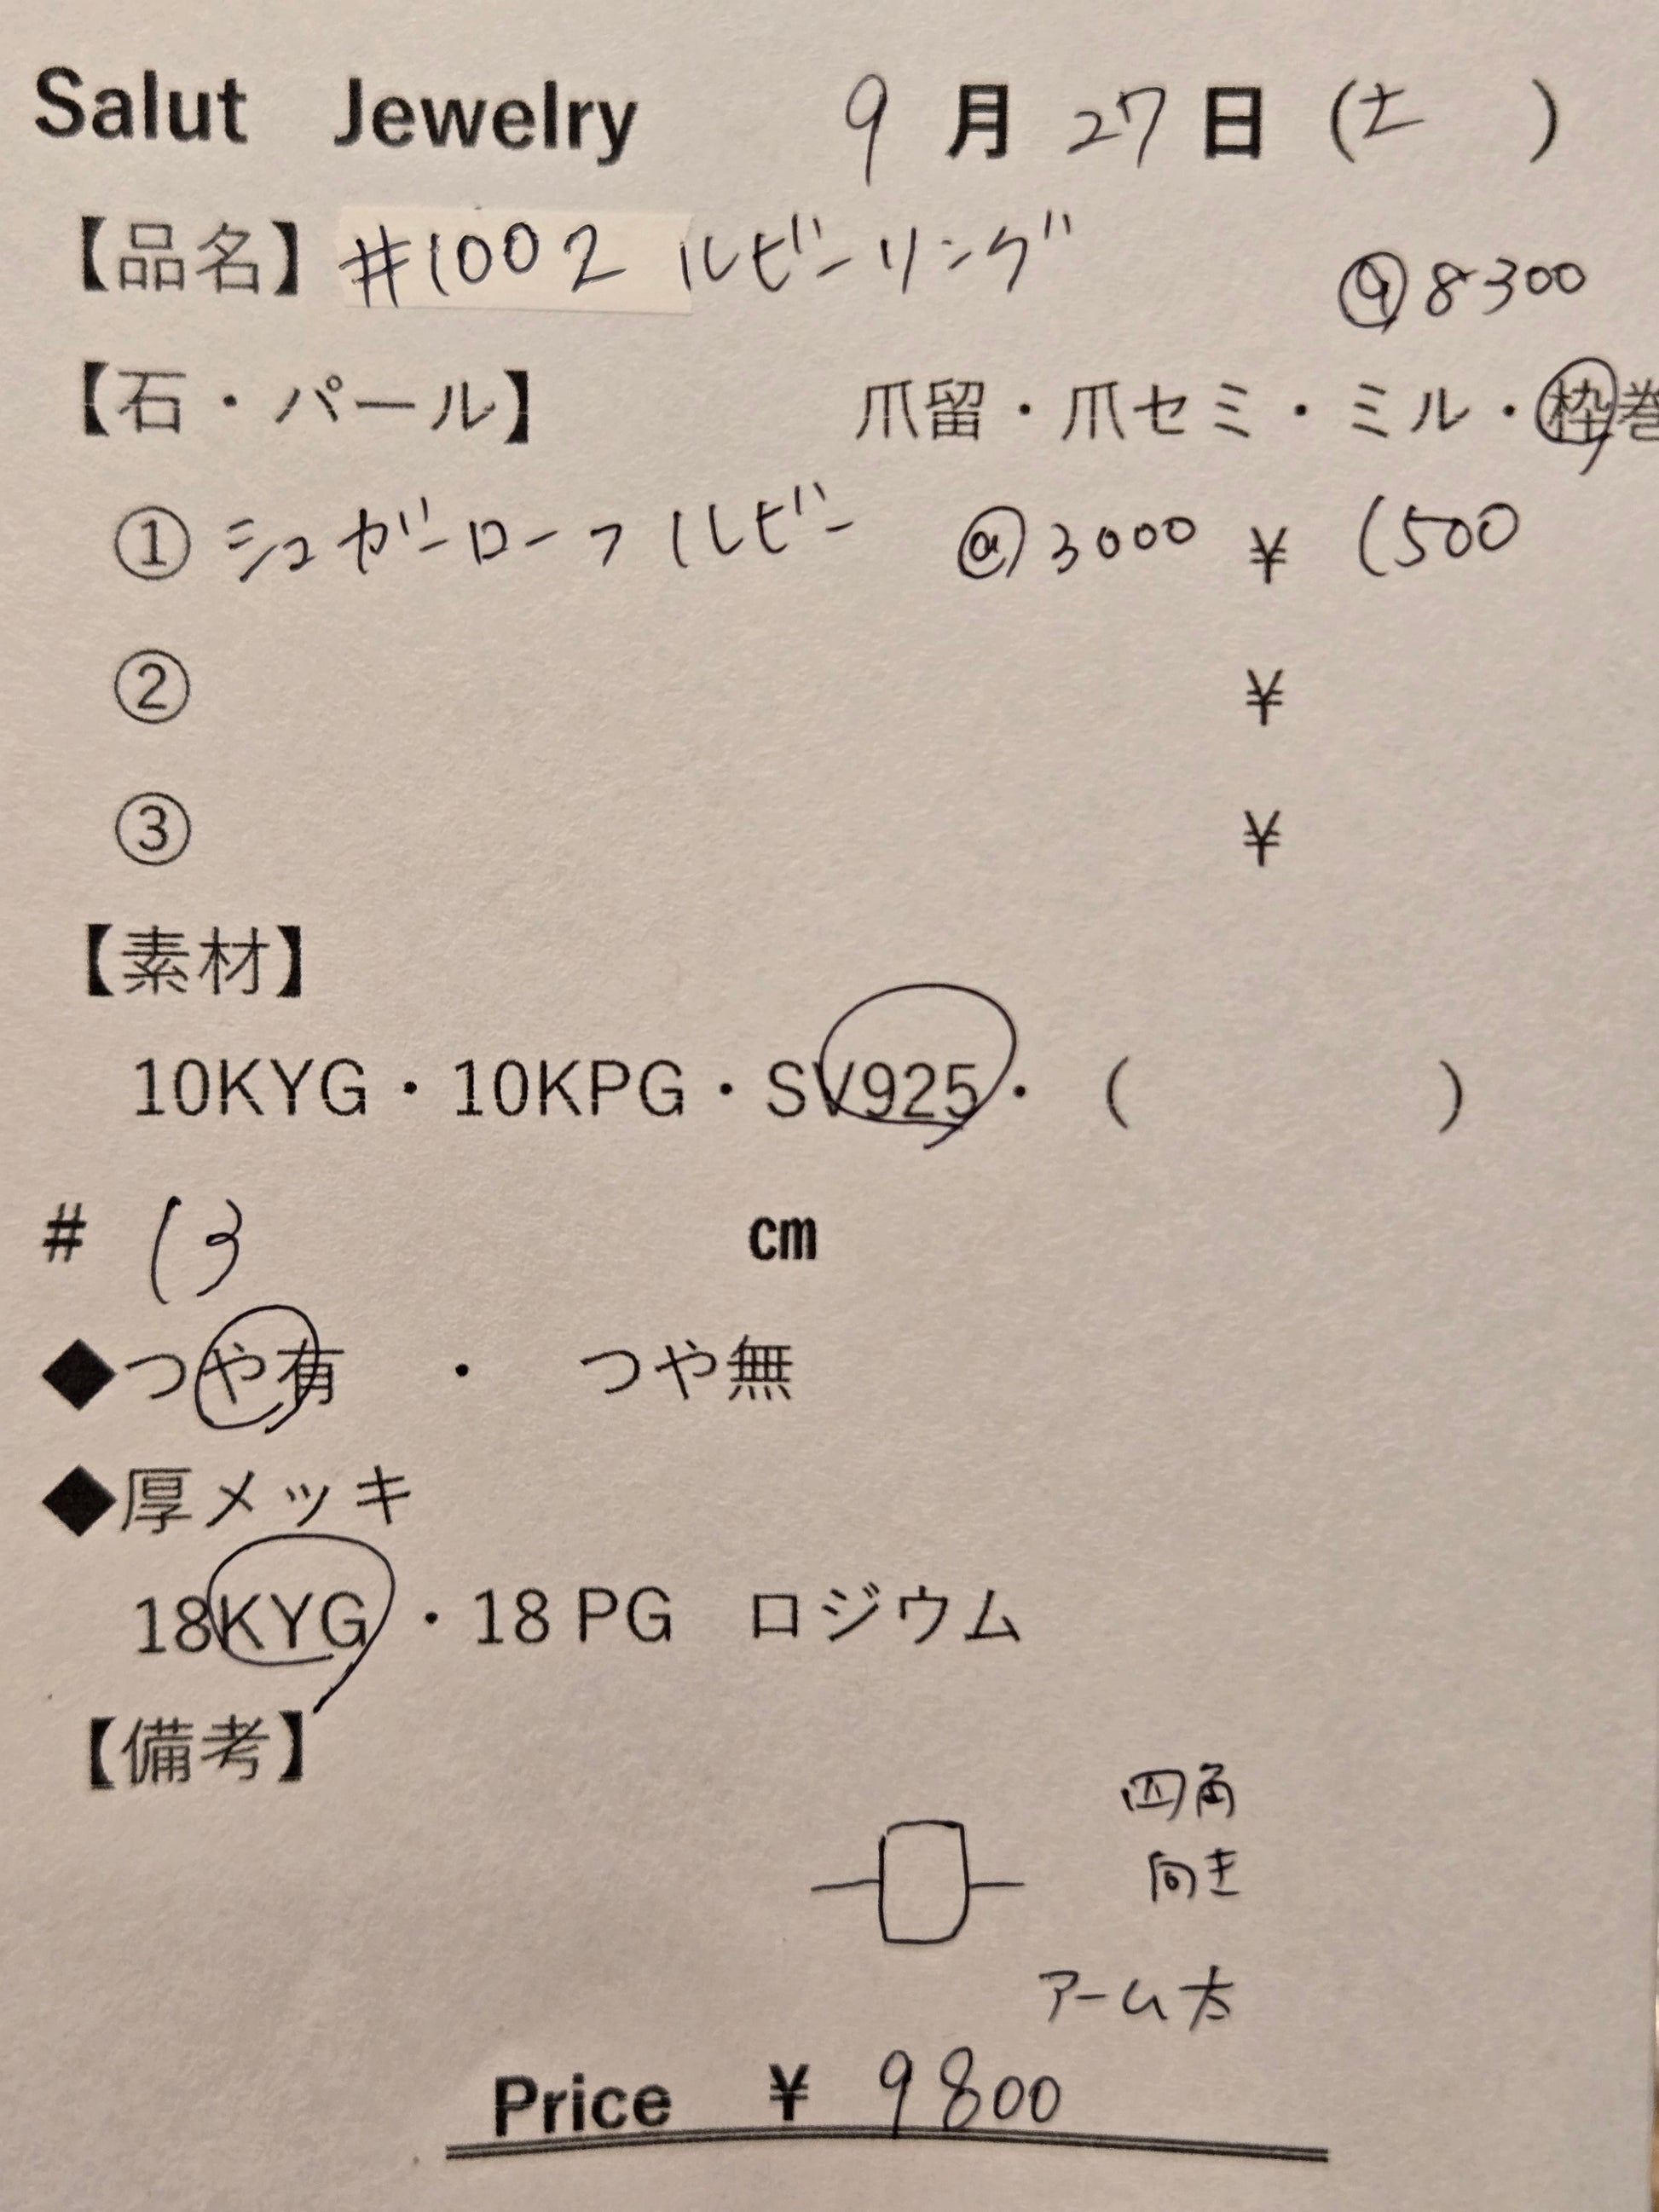 Salut Jewelry 9月27日(土 )
【品名】#1002 ルビーリング
@8300
【石・パール】 爪留・爪セミ・ミル・枠巻
① シュガーローフルビー @3000 ¥ 1500
② ¥
③ ¥
【素材】
10KYG・10KPG・SV925・( )
# 13 cm
◆つや有 ・ つや無
◆厚メッキ
18KYG・18 PG ロジウム
【備考】
四角
向き
アーム太
Price ¥ 9800